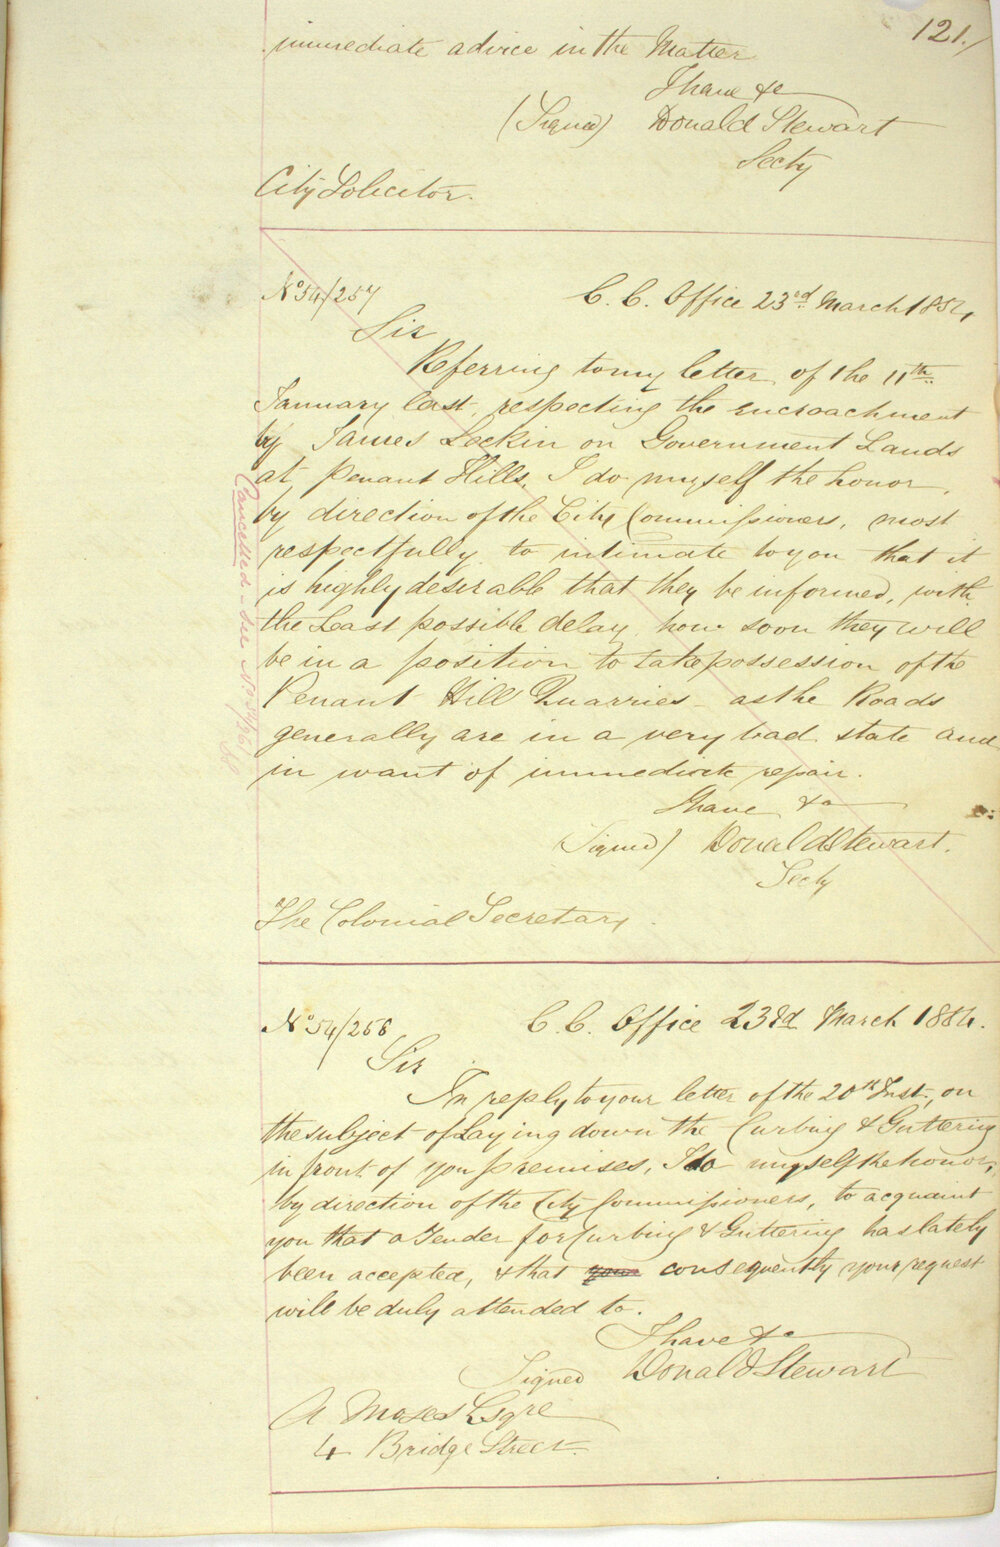 121.
immediate advice in the Matter
I have &c
(Signed) Donald Stewart
Secty
City Solicitor.
No 54/257
C. C. Office 23rd March 1854
Sir
Referring to my letter of the 11th
January last, respecting the encroachment
by James Leckin on Government Lands
at Penant Hills, I do myself the honor,
by direction of the City Commissioners, most
respectfully to intimate to you that it
is highly desirable that they be informed, with
the least possible delay, how soon they will
be in a position to take possession of the
Penant Hill Quarries – as the Roads
generally are in a very bad state and
in want of immediate repair.
I have &c
(Signed) Donald Stewart.
Secty
The Colonial Secretary.
Cancelled – See No 54/
No 54/258
C. C. Office 23rd March 1854.
Sir
In reply to your letter of the 20th Inst., on
the subject of Laying down the Curbing & Guttering
in front of you premises, I do myself the honor,
by direction of the City Commissioners, to acquaint
you that a Tender for Curbing & Guttering has lately
been accepted, & that your consequently your request
will be duly attended to.
I have &c
Signed Donald Stewart
A Moses Esqre
4 Bridge Street.